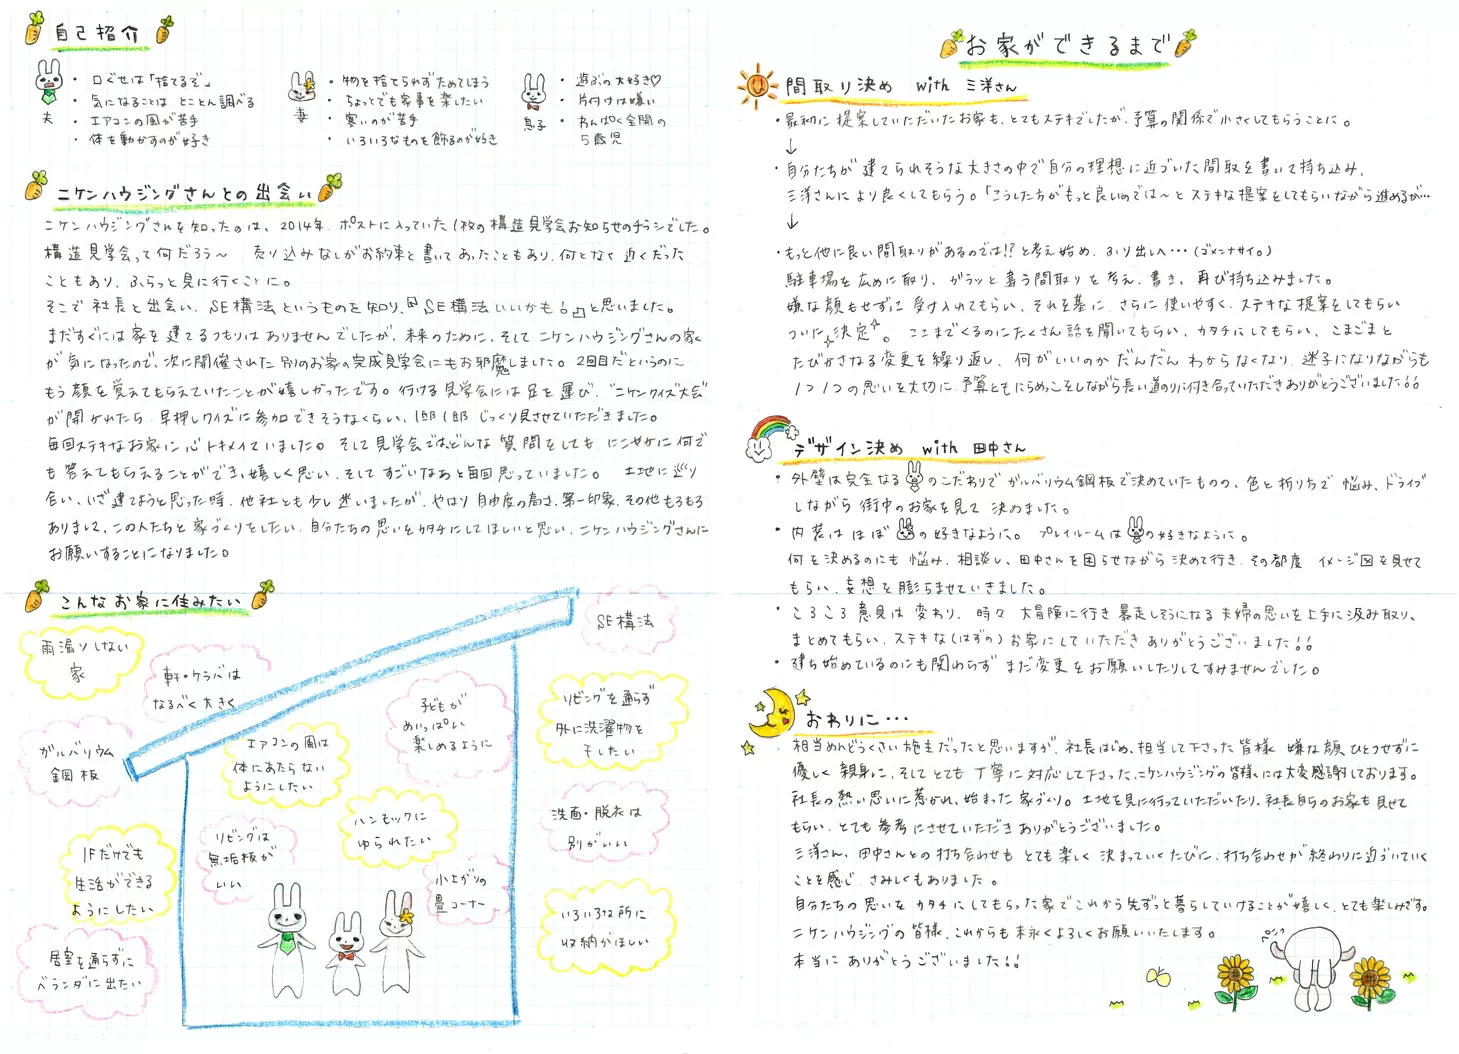 自己紹介
・口ぐせは「捨てるぞ」
・気になることは とことん調べる
・エアコンの風が苦手
・体を動かすのが好き
夫
・物を捨てられずためてしまう
・ちょっとでも家事を楽したい
・寒いのが苦手
・いろいろなものを飾るのが好き
妻
・遊ぶの大好き♡
・片付けは嫌い
・わんぱく全開の
５歳児
息子
ニケンハウジングさんとの出会い
ニケンハウジングさんを知ったのは、2014年、ポストに入っていた1枚の構造見学会お知らせのチラシでした。
構造見学会って何だろう〜 売り込みなしがお約束と書いてあったこともあり、何となく近くだった
こともあり、ふらっと見に行くことに。
そこで社長と出会い、SE構法というものを知り、『SE構法いいかも!』と思いました。
まだすぐには家を建てるつもりはありませんでしたが、未来のために、そしてニケンハウジングさんの家
が気になったので、次に開催された別のお家の完成見学会にもお邪魔しました。2回目だというのに
もう顔を覚えてもらえていたことが嬉しかったです。行ける見学会には足を運び、"ニケンクイズ大会"
が開かれたら、早押しクイズに参加できそうなくらい、1邸1邸じっくり見させていただきました。
毎回ステキなお家に心トキメイていました。そして見学会ではどんな質問をしても、にこやかに何で
も答えてもらえることができ、嬉しく思い、そしてすごいなあと毎回思っていました。 土地に巡り
合い、いざ建てようと思った時、他社とも少し迷いましたが、やはり自由度の高さ、第一印象、その他もろもろ
ありまして、この人たちと家づくりをしたい、自分たちの思いをカタチにしてほしいと思い、ニケンハウジングさんに
お願いすることになりました。
こんなお家に住みたい
雨漏りしない
家
軒・ケラバは
なるべく大きく
ガルバリウム
鋼板
1Fだけでも
生活ができる
ようにしたい
居室を通らずに
ベランダに出たい
エアコンの風は
体にあたらない
ようにしたい
リビングは
無垢板が
いい
ハンモックに
ゆられたい
子どもが
めいっぱい
楽しめるように
小上がりの
畳コーナー
SE構法
リビングを通らず
外に洗濯物を
干したい
洗面・脱衣は
別がいい
いろいろな所に
収納がほしい
お家ができるまで
間取り決め with 三洋さん
・最初に提案していただいたお家も、とてもステキでしたが、予算の関係で小さくしてもらうことに。
↓
・自分たちが建てられそうな大きさの中で自分の理想に近づいた間取を書いて持ち込み、
三洋さんにより良くしてもらう。「こうした方がもっと良いのでは〜とステキな提案をしてもらいながら進めるが…
↓
・もっと他に良い間取りがあるのでは!?と考え始め、ふり出しへ…(ゴメンナサイ。)
駐車場を広めに取り、ガラッと違う間取りを考え、書き、再び持ち込みました。
嫌な顔もせずに受け入れてもらい、それを基に、さらに使いやすく、ステキな提案をしてもらい
ついに決定。 ここまでくるのにたくさん話を聞いてもらい、カタチにしてもらい、こまごまと
たびかさなる変更を繰り返し、何がいいのかだんだんわからなくなり、迷子になりながらも
1つ1つの思いを大切に、予算ともにらめっこをしながら長い道のりに付き合っていただきありがとうございました!!
デザイン決め with 田中さん
・外壁は完全なるのこだわりでガルバリウム鋼板で決めていたものの、色と折り方で悩み、ドライブ
しながら街中のお家を見て決めました。
・内装はほぼの好きなように。 プレイルームはの好きなように。
何を決めるのにも悩み、相談し、田中さんを困らせながら決めて行き、その都度 イメージ図を見せて
もらい、妄想を膨らませていきました。
・ころころ意見は変わり、時々 大冒険に行き暴走しそうになる夫婦の思いを上手に汲み取り、
まとめてもらい、ステキな(はずの)お家にしていただきありがとうございました!!
・建ち始めているのにも関わらずまだ変更をお願いしたりしてすみませんでした。
おわりに…
相当めんどうくさい施主だったと思いますが、社長はじめ、担当して下さった皆様 嫌な顔ひとつせずに
優しく親身に、そしてとても丁寧に対応して下さった、ニケンハウジングの皆様には大変感謝しております。
社長の熱い思いに惹かれ、始まった家づくり。土地を見に行っていただいたり、社長自らのお家も見せて
もらい、とても参考にさせていただきありがとうございました。
三洋さん、田中さんとの打ち合わせもとても楽しく決まっていくたびに、打ち合わせが終わりに近づいていく
ことを感じ、さみしくもありました。
自分たちの思いをカタチにしてもらった家でこれから先ずっと暮らしていけることが嬉しく、とても楽しみです。
ニケンハウジングの皆様、これからも末永くよろしくお願いいたします。
本当にありがとうございました!!
ペコッ